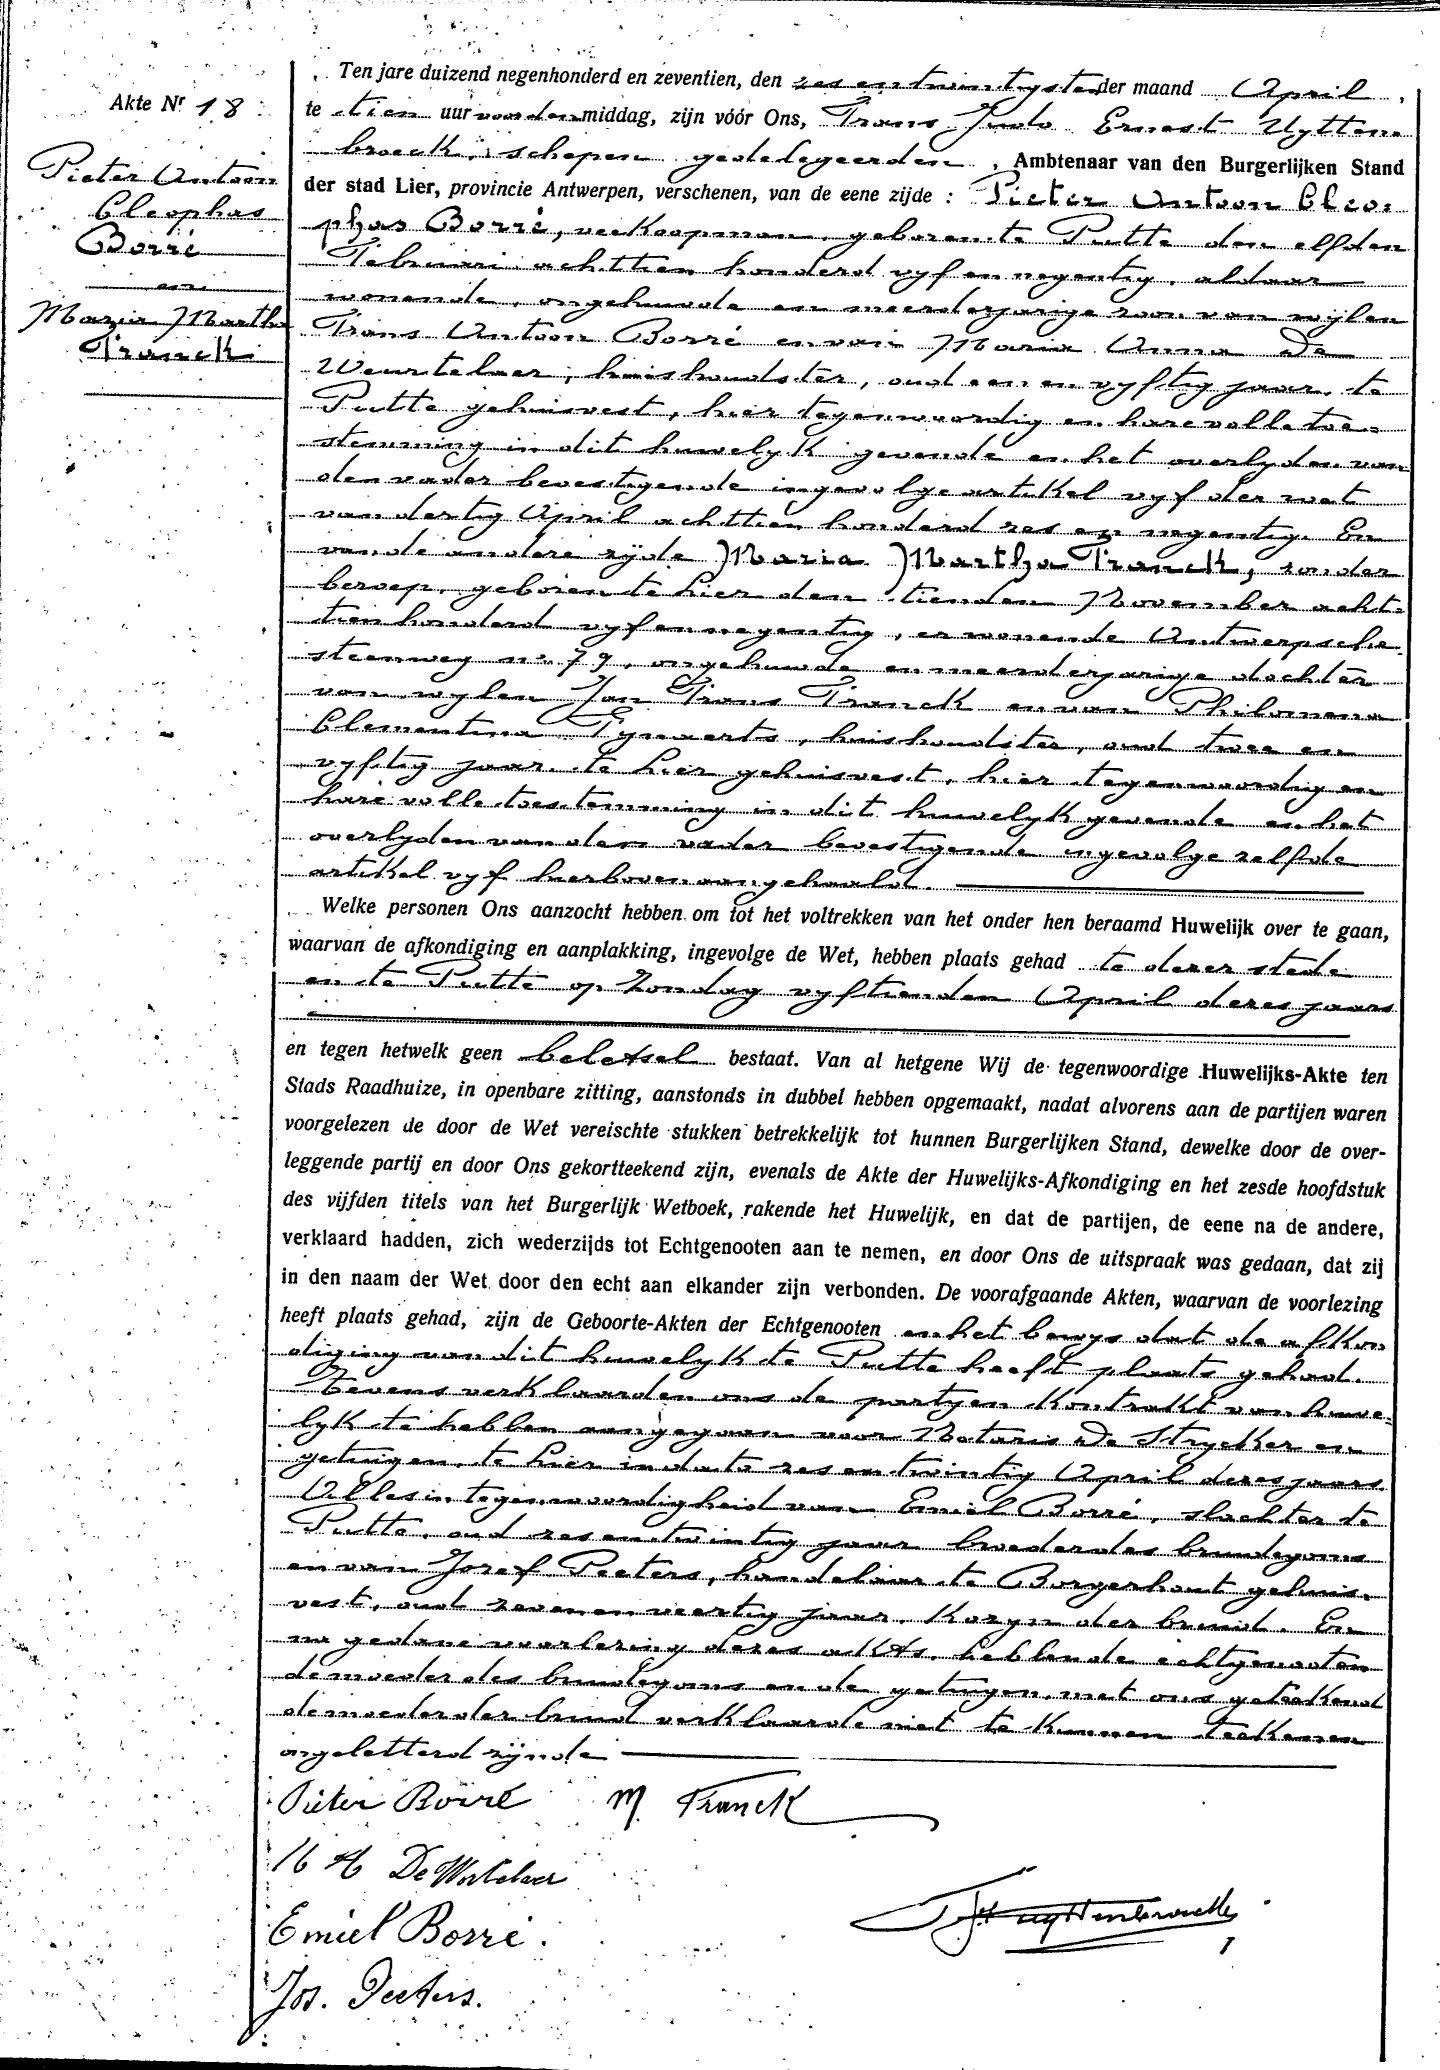 Akte Nr 18
Pieter Antoon
Cleophas
Borré
en
Maria Martha
Franck
Ten jare duizend negenhonderd en zeventien, den zes en twintigsten der maand April,
te tien uur voorden middag, zijn vóór Ons, Frans Ludo Ernest Uytten
broeck, schepen gedelegeerden, Ambtenaar van den Burgerlijken Stand
der stad Lier, provincie Antwerpen, verschenen, van de eene zijde : Pieter Antoon Cleo:
phas Borré, veekoopman, geboren te Putte den elfden
Februari achttien honderd vyf en negentig, aldaar
wonende, ongehuwde en meerderjarige zoon van wijlen
Frans Antoon Borré en van Maria Anna De
Weurtelaer, huishoudster, oud een en vyftig jaar, te
Putte gehuisvest, hier tegenwoordig en hare volle toe=
stemming in dit huwelyk gevende en het overlyden van
den vader bevestigende ingevolge artikel vyf der wet
van dertig April achttien honderd zes en negentig. En
van de andere zijde Maria Martha Franck, zonder
beroep, geboren te hier den tienden November acht=
tien honderd vyf en negentig, er wonende Antwerpsche
steenweg nr 79, ongehuwde en meerderjarige dochter
van wylen Jan Frans Franck en van Philomena
Clementina Fynaerts, huishoudster, oud twee en
vyftig jaar, te hier gehuisvest, hier tegenwoordig en
hare volle toestemming in dit huwelyk gevende en het
overlyden van den vader bevestigende ingevolge zelfde
artikel vyf hierboven aangehaald.
Welke personen Ons aanzocht hebben om tot het voltrekken van het onder hen beraamd Huwelijk over te gaan,
waarvan de afkondiging en aanplakking, ingevolge de Wet, hebben plaats gehad te dezer stede
en te Putte op Zondag vyftienden April dezes jaars
en tegen hetwelk geen beletsel bestaat. Van al hetgene Wij de tegenwoordige Huwelijks-Akte ten
Stads Raadhuize, in openbare zitting, aanstonds in dubbel hebben opgemaakt, nadat alvorens aan de partijen waren
voorgelezen de door de Wet vereischte stukken betrekkelijk tot hunnen Burgerlijken Stand, dewelke door de over-
leggende partij en door Ons gekortteekend zijn, evenals de Akte der Huwelijks-Afkondiging en het zesde hoofdstuk
des vijfden titels van het Burgerlijk Wetboek, rakende het Huwelijk, en dat de partijen, de eene na de andere,
verklaard hadden, zich wederzijds tot Echtgenooten aan te nemen, en door Ons de uitspraak was gedaan, dat zij
in den naam der Wet door den echt aan elkander zijn verbonden. De voorafgaande Akten, waarvan de voorlezing
heeft plaats gehad, zijn de Geboorte-Akten der Echtgenooten en het bewys dat de afkon
diging van dit huwelyk te Putte heeft plaats gehad.
Tevens verklaarden ons de partyen kontrakt van huwe=
lyk te hebben aangegaan voor Notaris De Strycker en
getuigen, te hier in dato zes en twintig April dezes jaars.
Alles in tegenwoordigheid van Emiel Borré, slachter te
Putte, oud zes en twintig jaar broeder des bruidegoms
en van Jozef Peeters, handelaar te Borgerhout gehuis=
vest, oud zeven en veertig jaar, kozyn der bruid. En
na gedane voorlezing dezes akts, hebben de echtgenooten
de moeder des bruidegoms en de getuigen, met ons geteekend
de moeder der bruid verklaarde niet te kunnen teekenen
ongeletterd zijnde
Pieter Borré M. Franck
De Wortelaer
Emiel Borré.
Jos. Peeters.